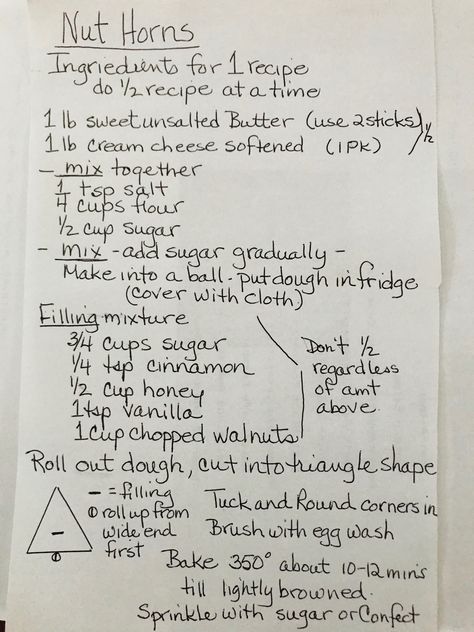 Nut Horns
Ingriedients for 1 recipe
do 1/2 recipe at a time
1 lb sweet unsalted Butter (use 2 sticks)
1 lb cream cheese softened (1 PK) 1/2
- mix together
1 tsp salt
4 cups flour
1/2 cup sugar
- mix - add sugar gradually -
Make into a ball - put dough in fridge
(cover with cloth)
Filling mixture
3/4 cups sugar
1/4 tsp cinnamon
1/2 cup honey
1 tsp vanilla
1 cup chopped walnuts
Don't 1/2
regardless
of amt
above.
Roll out dough, cut into triangle shape
- = filling
① roll up from
wide end
first
①
Tuck and Round corners in
Brush with egg wash
Bake 350° about 10-12 mins
till lightly browned.
Sprinkle with sugar or Confect